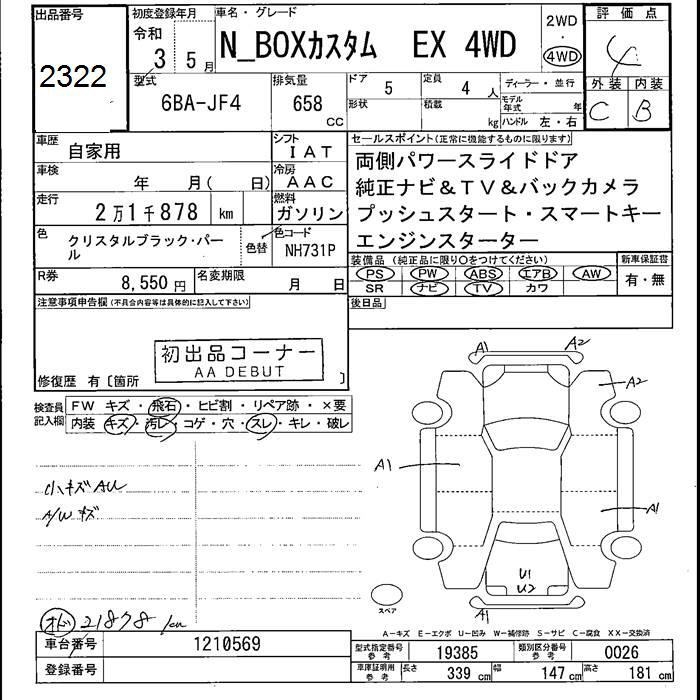 出品番号
2322
初度登録年月
令和
3 5月
車名・グレード
N_BOXカスタム EX 4WD
2WD
・
4WD
評価点
4
外装 内装
C B
型式
6BA-JF4
排気量
658
CC
ドア
5
形状
定員
4 人
積載
kg
ディーラー・並行
モデル年式 年
ハンドル 左・右
車歴
自家用
シフト
IAT
車検
年 月( 日)
冷房
AAC
走行
2万1千878 km
燃料
ガソリン
色
クリスタルブラック・パール
色替
色コード
NH731P
R券
8,550円
名変期限
月 日
セールスポイント(正常に機能するものに限ります)
両側パワースライドドア
純正ナビ&TV&バックカメラ
プッシュスタート・スマートキー
エンジンスターター
装備品(純正品に限り○をつけてください)
PS PW ABS エアB AW
SR ナビ TV カワ
新車保証書
有・無
後日品
注意事項申告欄(不具合内容等は具体的に記入して下さい)
初出品コーナー
AA DEBUT
修復歴 有〔箇所 〕
検査員記入欄
FW キズ・飛石・ヒビ割・リペア跡・×要
内装 キズ・汚レ・コゲ・穴・スレ・キレ・破レ
小キズAU
A/Wキズ
オド 21878km
A1 A2
A2
A1
A1
U1
U2
A1
スペア
A-キズ E-エクボ U-凹み W-補修跡 S-サビ C-腐食 XX-交換済
車台番号
1210569
登録番号
型式指定番号 参考
19385
類別区分番号 参考
0026
車庫証明用 参考
長さ 339 cm
幅 147 cm
高さ 181 cm